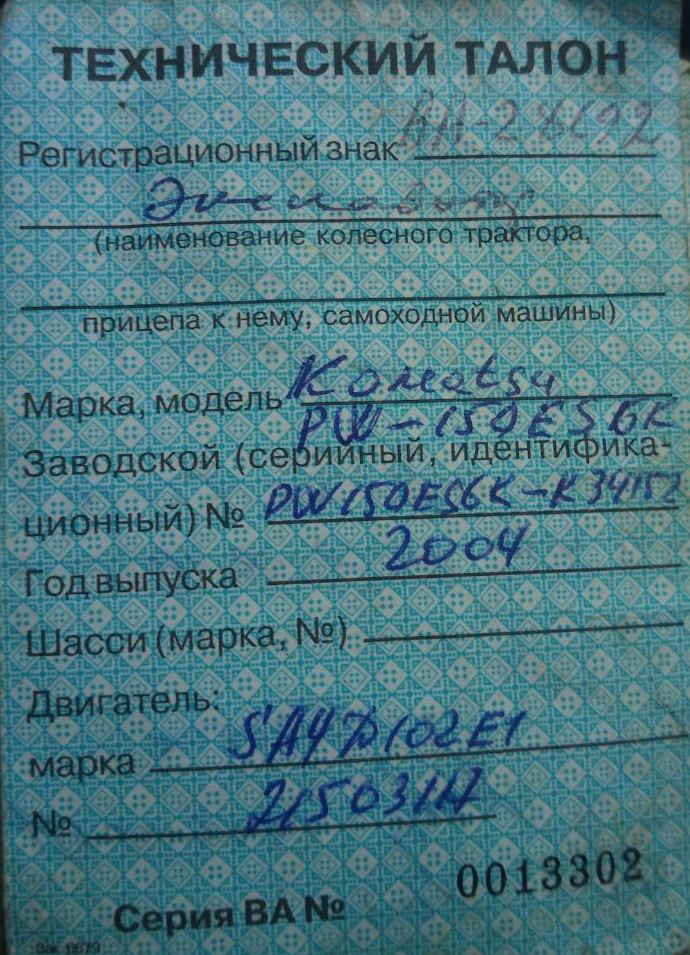 ТЕХНИЧЕСКИЙ ТАЛОН
Регистрационный знак
Экскаватор
(наименование колесного трактора,
прицепа к нему, самоходной машины)
Марка, модель Komatsu
PW-150ES6K
Заводской (серийный, идентифика-
ционный) № PW150ES6K-K34152
Год выпуска 2004
Шасси (марка, №)
Двигатель:
марка SA4D102E1
№
Серия ВА № 0013302
Зак. 6679